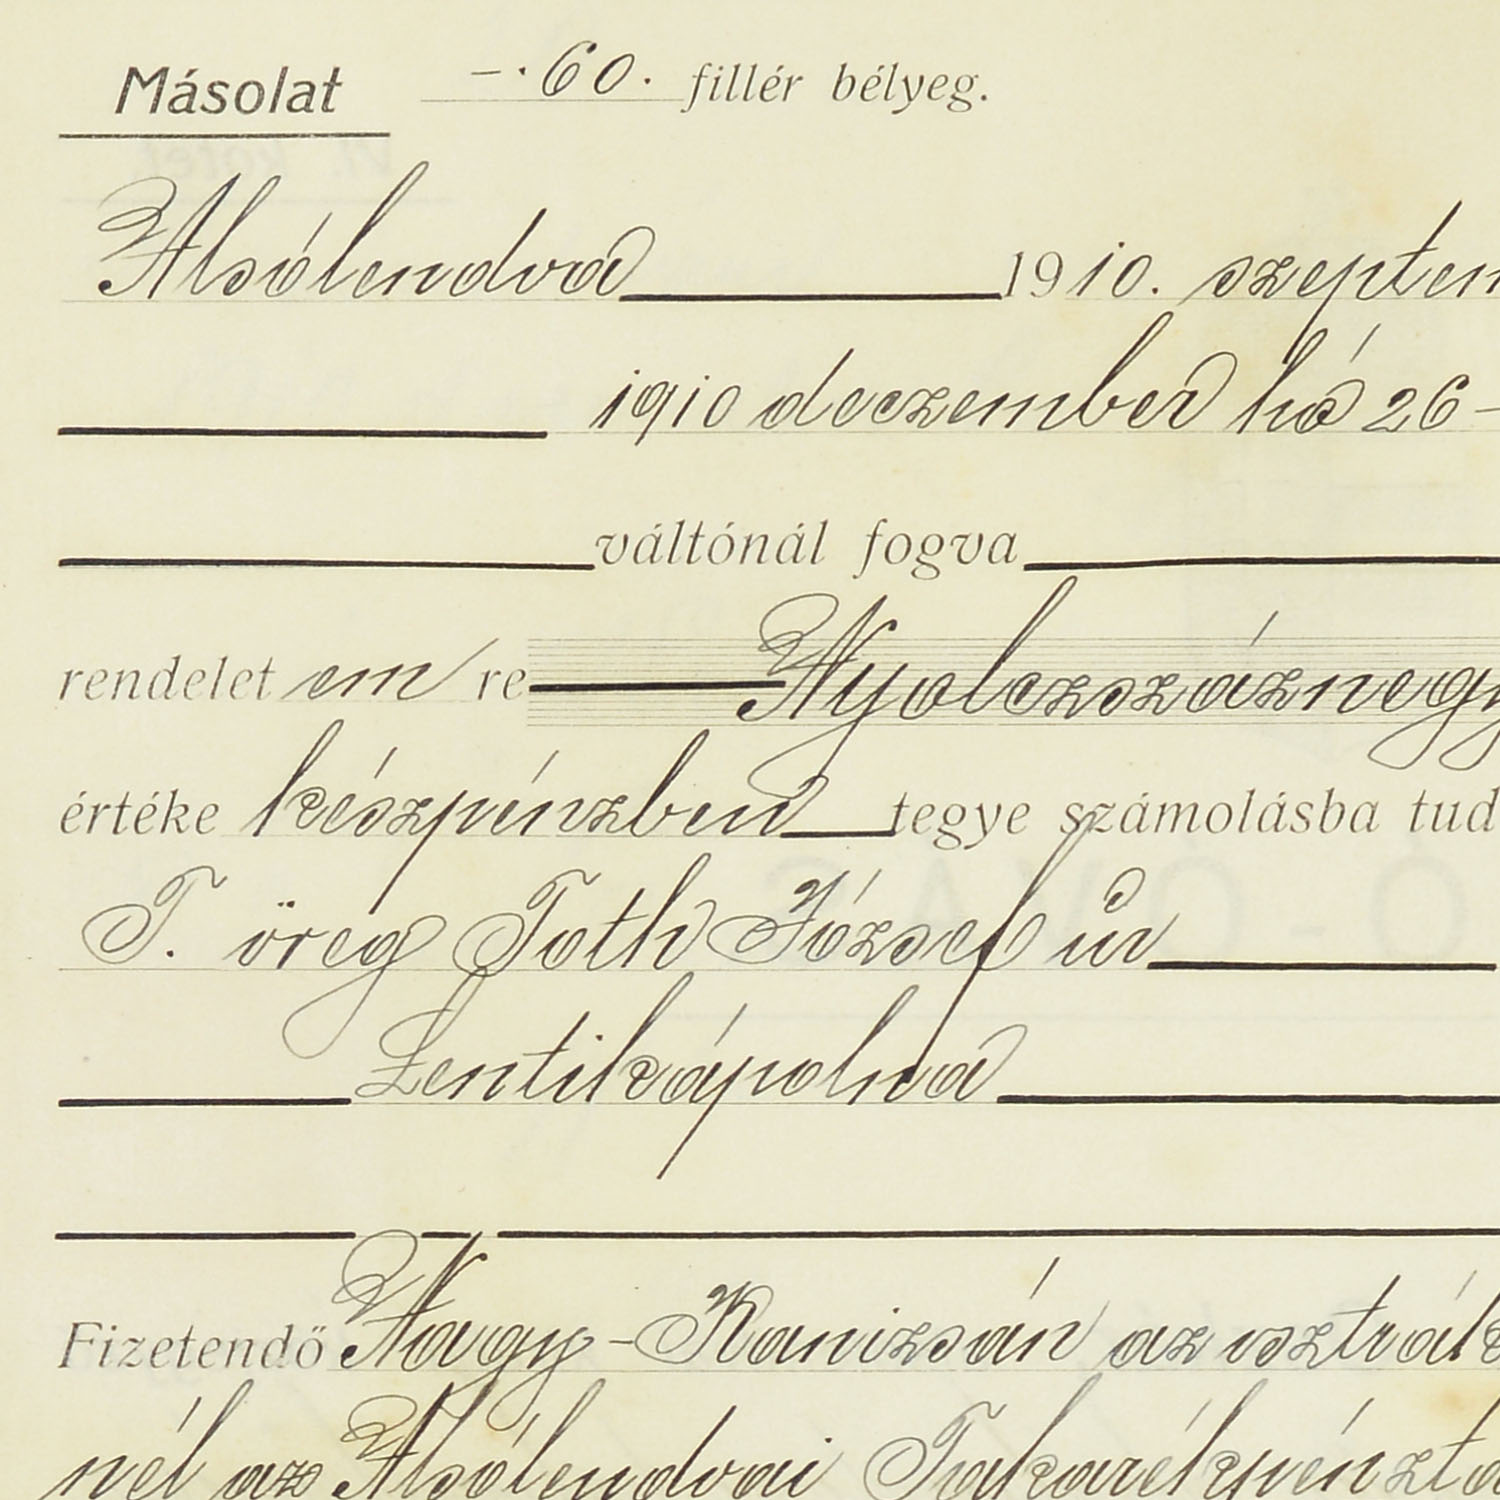 Másolat -.60. fillér bélyeg.
Alsólendva 1910. szeptem
1910 deczember hó 26-
váltónál fogva
rendelet em re Nyolczszáznegy
értéke készpénzben tegye számolásba tud
T. öreg Toth József úr
Lentikápolna
Fizetendő Nagy-Kanizsán az osztrák
nél az Alsólendvai Takarékpénzta